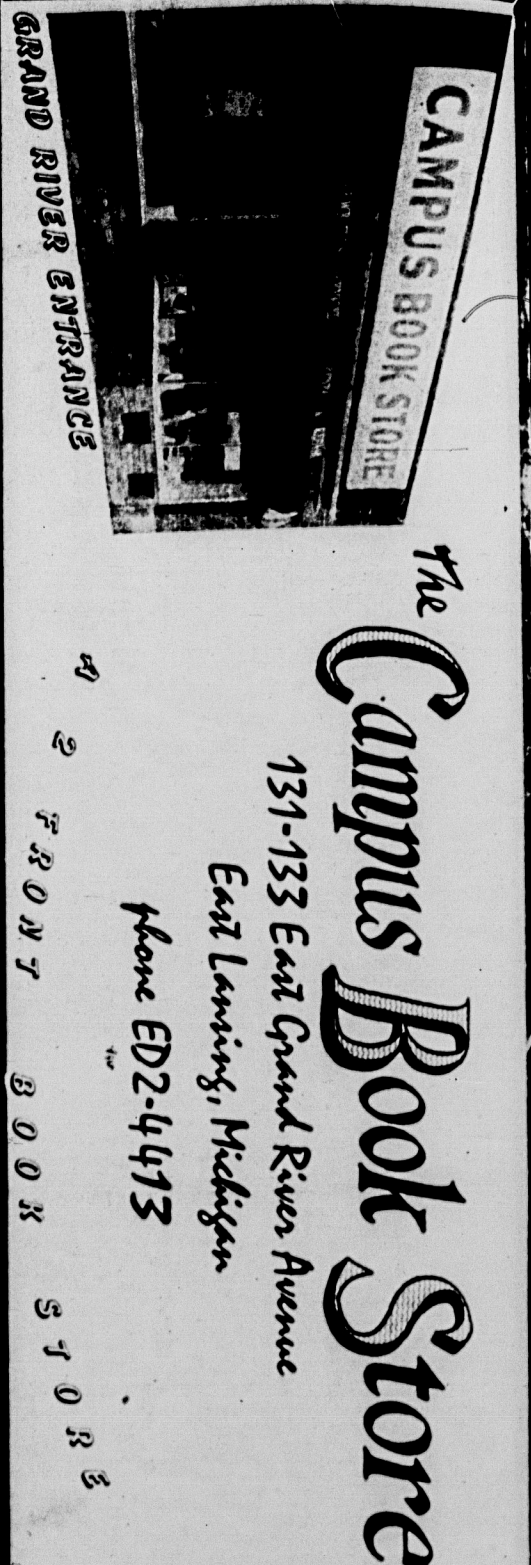 CAMPUS BOOK STORE
GRAND RIVER ENTRANCE
The Campus Book Store
131-133 East Grand River Avenue
East Lansing, Michigan
phone ED2-4413
A 2 FRONT BOOK STORE